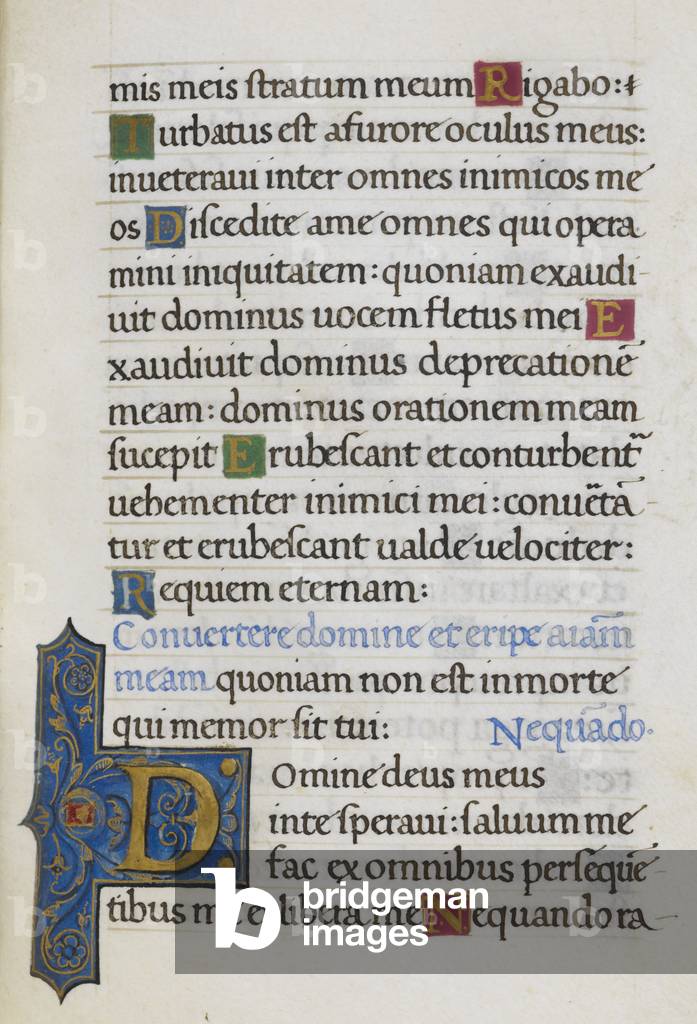 mis meis stratum meum Rigabo:
Turbatus est afurore oculus meus:
inueteraui inter omnes inimicos me
os Discedite ame omnes qui opera
mini iniquitatem: quoniam exaudi-
uit dominus uocem fletus mei E
xaudiuit dominus deprecationē
meam: dominus orationem meam
sucepit Erubescant et conturbent̄
uehementer inimici mei: conuētā
tur et erubescant ualde uelociter:
Requiem eternam:
Conuertere domine et eripe aīam
meam quoniam non est inmorte
qui memor sit tui: Nequādo.
Domine deus meus
inte speraui: saluum me
fac ex omnibus persequē
tibus me et libera me Nequando ra-
b bridgeman
images